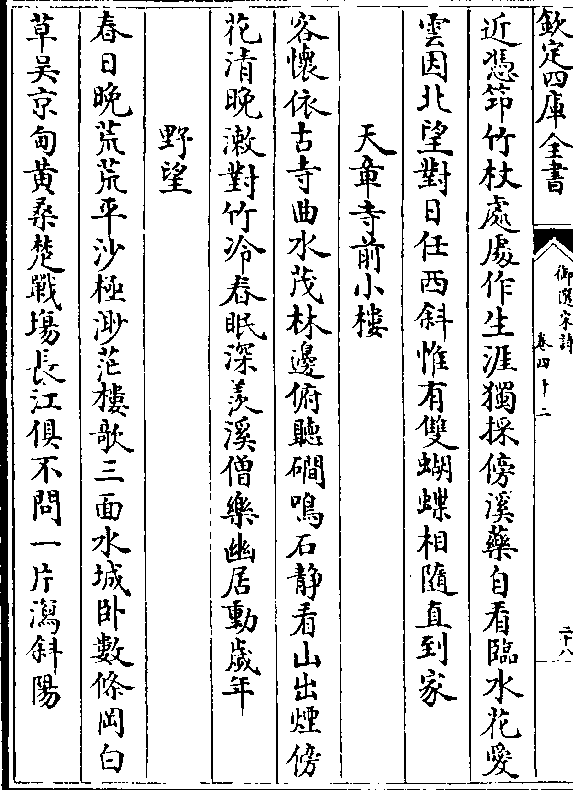 欽定四庫全書
御選宋詩
卷四十二
二十八
近憑笻竹杖處處作生涯獨採傍溪藥自看臨水花愛
雲因北望對日任西斜惟有雙蝴蝶相隨直到家
天章寺前小樓
客懷依古寺曲水茂林邊俯聽磵鳴石靜看山出煙傍
花清晚漱對竹冷春眠深羨溪僧樂幽居動歲年
野望
春日晚荒荒平沙極渺茫樓歌三面水城卧數條岡白
草吳京甸黄桑楚戰塲長江俱不問一片瀉斜陽